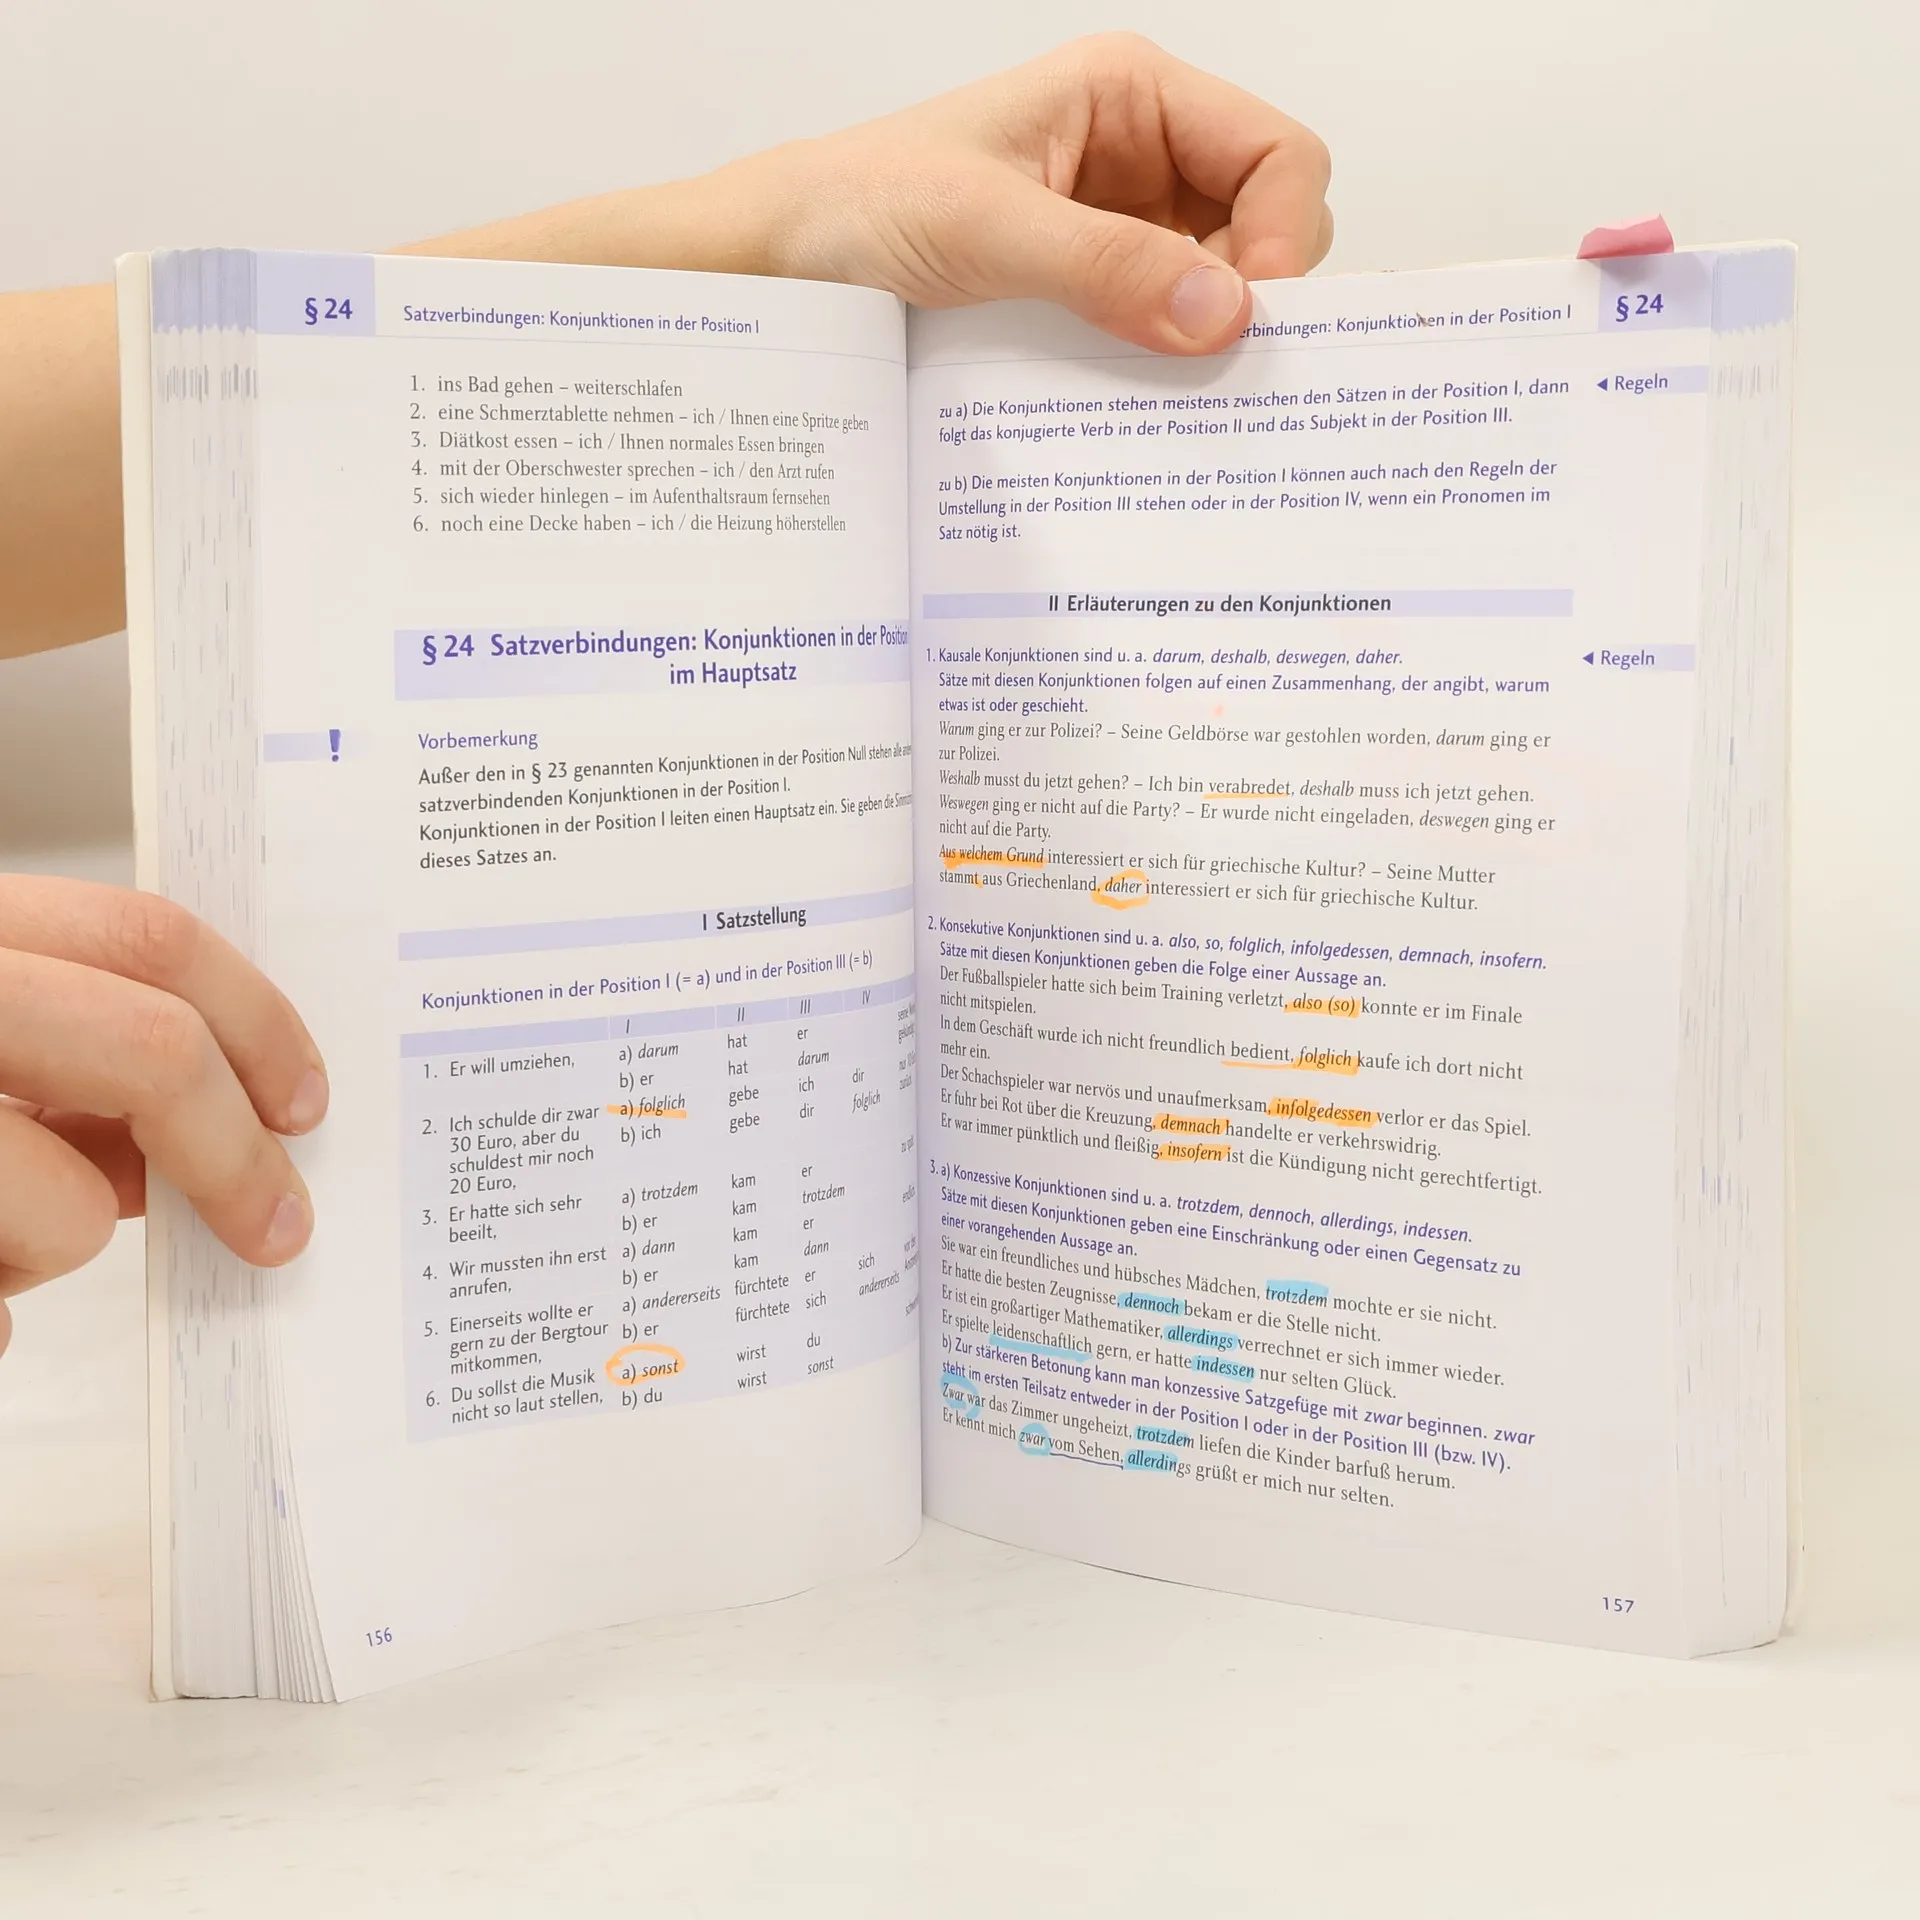 § 24 Satzverbindungen: Konjunktionen in der Position I
1. ins Bad gehen – weiterschlafen
2. eine Schmerztablette nehmen – ich / Ihnen eine Spritze geben
3. Diätkost essen – ich / Ihnen normales Essen bringen
4. mit der Oberschwester sprechen – ich / den Arzt rufen
5. sich wieder hinlegen – im Aufenthaltsraum fernsehen
6. noch eine Decke haben – ich / die Heizung höherstellen
§ 24 Satzverbindungen: Konjunktionen in der Position
im Hauptsatz
!
Vorbemerkung
Außer den in § 23 genannten Konjunktionen in der Position Null stehen alle
satzverbindenden Konjunktionen in der Position I.
Konjunktionen in der Position I leiten einen Hauptsatz ein. Sie geben die
dieses Satzes an.
I Satzstellung
Konjunktionen in der Position I (= a) und in der Position III (= b)
I II III IV
1. Er will umziehen, a) darum hat er
b) er hat darum
2. Ich schulde dir zwar a) folglich gebe ich dir
30 Euro, aber du b) ich gebe dir folglich
schuldest mir noch
20 Euro,
3. Er hatte sich sehr a) trotzdem kam er
beeilt, b) er kam trotzdem
4. Wir mussten ihn erst a) dann kam er
anrufen, b) er kam dann
5. Einerseits wollte er a) andererseits fürchtete er sich
gern zu der Bergtour b) er fürchtete sich andererseits
mitkommen,
6. Du sollst die Musik a) sonst wirst du
nicht so laut stellen, b) du wirst sonst
156
erbindungen: Konjunktionen in der Position I § 24
zu a) Die Konjunktionen stehen meistens zwischen den Sätzen in der Position I, dann
folgt das konjugierte Verb in der Position II und das Subjekt in der Position III.
◄ Regeln
zu b) Die meisten Konjunktionen in der Position I können auch nach den Regeln der
Umstellung in der Position III stehen oder in der Position IV, wenn ein Pronomen im
Satz nötig ist.
II Erläuterungen zu den Konjunktionen
1. Kausale Konjunktionen sind u. a. darum, deshalb, deswegen, daher.
◄ Regeln
Sätze mit diesen Konjunktionen folgen auf einen Zusammenhang, der angibt, warum
etwas ist oder geschieht.
Warum ging er zur Polizei? – Seine Geldbörse war gestohlen worden, darum ging er
zur Polizei.
Weshalb musst du jetzt gehen? – Ich bin verabredet, deshalb muss ich jetzt gehen.
Weswegen ging er nicht auf die Party? – Er wurde nicht eingeladen, deswegen ging er
nicht auf die Party.
Aus welchem Grund interessiert er sich für griechische Kultur? – Seine Mutter
stammt aus Griechenland, daher interessiert er sich für griechische Kultur.
2. Konsekutive Konjunktionen sind u. a. also, so, folglich, infolgedessen, demnach, insofern.
Sätze mit diesen Konjunktionen geben die Folge einer Aussage an.
Der Fußballspieler hatte sich beim Training verletzt, also (so) konnte er im Finale
nicht mitspielen.
In dem Geschäft wurde ich nicht freundlich bedient, folglich kaufe ich dort nicht
mehr ein.
Der Schachspieler war nervös und unaufmerksam, infolgedessen verlor er das Spiel.
Er fuhr bei Rot über die Kreuzung, demnach handelte er verkehrswidrig.
Er war immer pünktlich und fleißig, insofern ist die Kündigung nicht gerechtfertigt.
3. a) Konzessive Konjunktionen sind u. a. trotzdem, dennoch, allerdings, indessen.
Sätze mit diesen Konjunktionen geben eine Einschränkung oder einen Gegensatz zu
einer vorangehenden Aussage an.
Sie war ein freundliches und hübsches Mädchen, trotzdem mochte er sie nicht.
Er hatte die besten Zeugnisse, dennoch bekam er die Stelle nicht.
Er ist ein großartiger Mathematiker, allerdings verrechnet er sich immer wieder.
Er spielte leidenschaftlich gern, er hatte indessen nur selten Glück.
b) Zur stärkeren Betonung kann man konzessive Satzgefüge mit zwar beginnen. zwar
steht im ersten Teilsatz entweder in der Position I oder in der Position III (bzw. IV).
Zwar war das Zimmer ungeheizt, trotzdem liefen die Kinder barfuß herum.
Er kennt mich zwar vom Sehen, allerdings grüßt er mich nur selten.
157